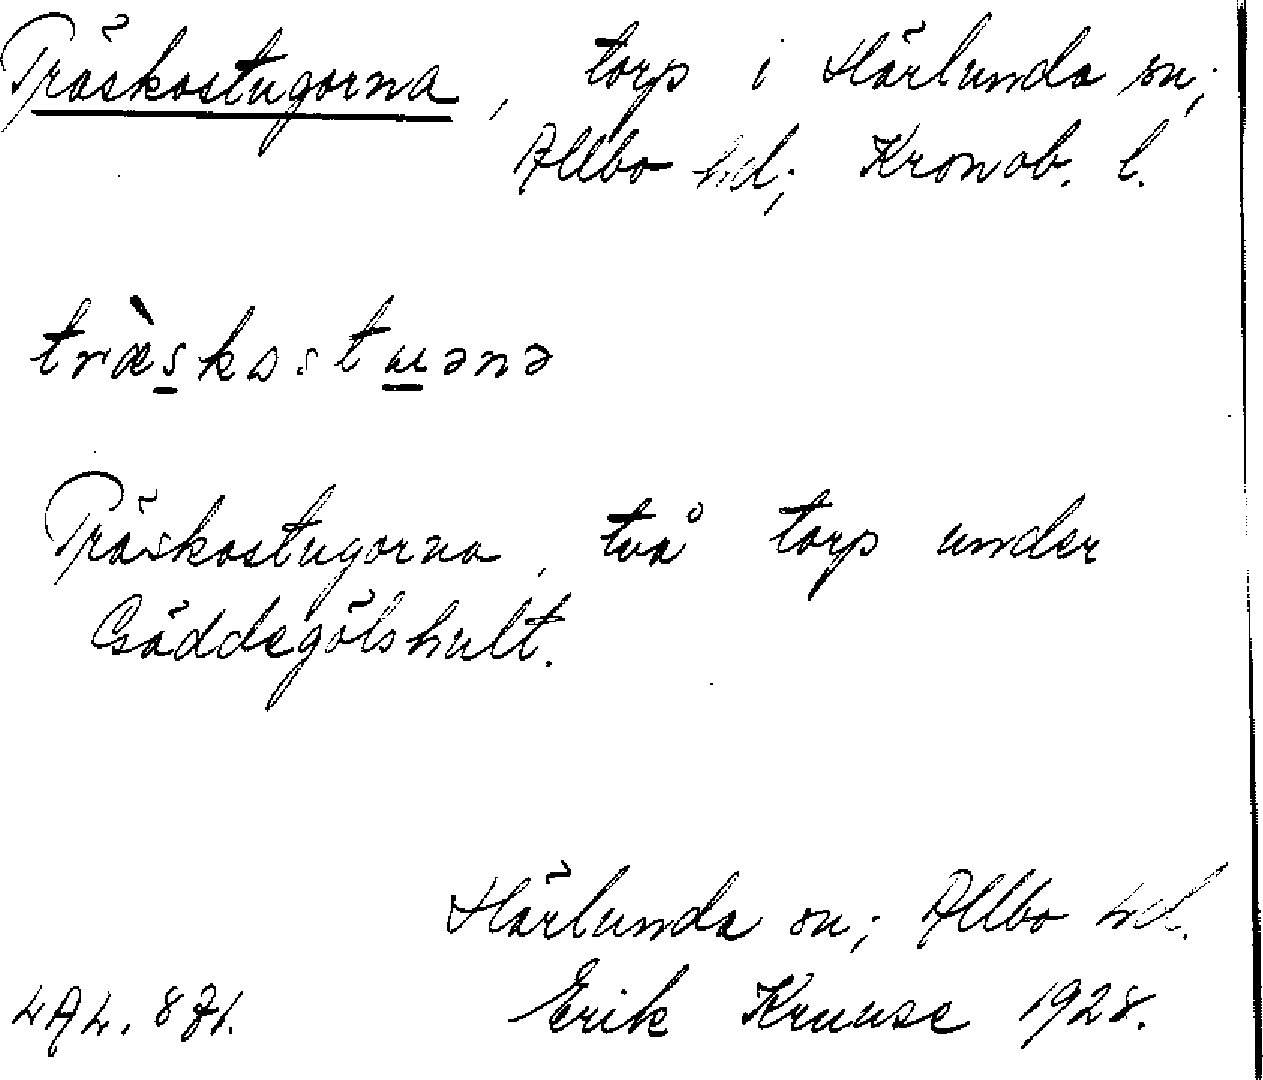 Träskostugorna, torp i Härlunda sn;
Allbo hd; Kronob. l.
træ̀skostuənə
Träskostugorna, två torp under
Gäddegölshult.
Härlunda sn; Allbo hd.
LAL. 871. Erik Kruuse 1928.